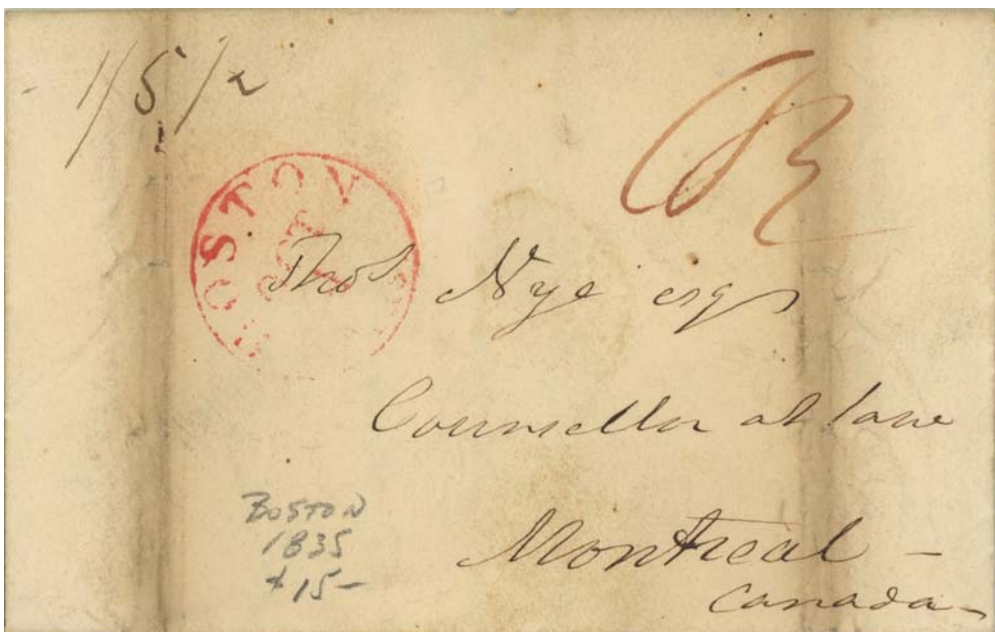 1/5 1/2
BOSTON
OCT
Thos Nye esqr
Counsellor at law
Montreal -
Canada -
BOSTON
1835
$15-